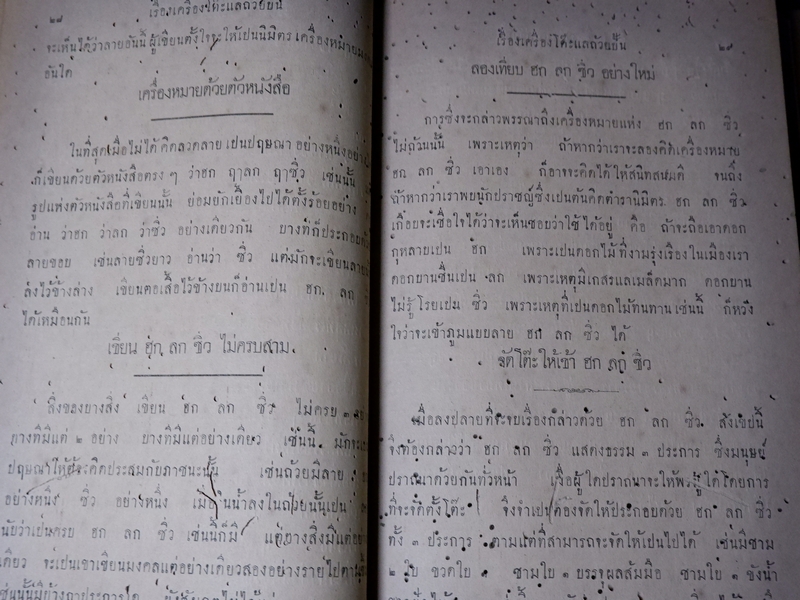 ๒๘ เรื่องเครื่องโต๊ะแลถ้วยปั้น
จะเห็นได้ว่าลายอันนี้ ผู้เขียนตั้งใจจะให้เปนนิมิตร เครื่องหมาย
อันใด
เครื่องหมายด้วยตัวหนังสือ
ในที่สุดเมื่อไม่ได้คิดลวดลาย เปนปฤษณา อย่างหนึ่งอย่างใด
ก็เขียนด้วยตัวหนังสือตรง ๆ ว่าฮก ฤาลก ฤาซิ่ว เช่นนั้น
รูปแห่งตัวหนังสือที่เขียนนั้น ย่อมยักเยื้องไปได้ตั้งร้อยอย่าง
อ่าน ว่าฮก ว่าลก ว่าซิ่ว อย่างเดียวกัน บางทีก็ประกอบ
ลายขอบ เช่นลายซิ่วยาว อ่านว่า ซิ่ว แต่มักจะเขียนลาย
ลงไว้ข้างล่าง เขียนคอเสื้อไว้ข้างบนก็อ่านเปน ฮก ลก
ได้เหมือนกัน
เขียน ฮก ลก ซิ่ว ไม่ครบสาม
สิ่งของบางสิ่ง เขียน ฮก ลก ซิ่ว ไม่ครบ ๓
บางทีมีแต่ ๒ อย่าง บางทีมีแต่อย่างเดียว เช่นนี้ มักจะ
ปฤษณาให้ผู้จะคิดประสมกับภาชนะนั้น เช่นถ้วยมีลาย
อย่างหนึ่ง ซิ่ว อย่างหนึ่ง เมื่อรินน้ำลงในถ้วยนั้นเปน ลก
นับว่าเปนครบ ฮก ลก ซิ่ว เช่นนี้ก็มี แต่บางสิ่งมีแต่อย่าง
เดียว จะเปนเขาเขียนมงคลแต่อย่างเดียวสองอย่างรายไปตาม
เช่นนั้นมีบ้างฤาประการใด ยังสังเกตไม่ได้
เรื่องเครื่องโต๊ะแลถ้วยปั้น ๒๙
ลองเทียบ ฮก ลก ซิ่ว อย่างใหม่
การซึ่งจะกล่าวพรรณาถึงเครื่องหมายแห่ง ฮก ลก ซิ่ว
ไม่ถ้วนนั้น เพราะเหตุว่า ถ้าหากว่าเราจะลองคิดเครื่องหมาย
ฮก ลก ซิ่ว เอาเอง ก็อาจจะคิดได้ให้สนิทสนมดี จนถึง
ถ้าหากว่าเราพบนักปราชญ์ซึ่งเปนต้นคิดตำรานิมิตร ฮก ลก ซิ่ว
เกือบจะเชื่อใจได้ว่าจะเห็นชอบว่าใช้ได้อยู่ คือ ถ้าจะถือเอาดอก
กุหลาบเปน ฮก เพราะเปนดอกไม้ที่งามรุ่งเรืองในเมืองเรา
ดอกบานชื่นเปน ลก เพราะเหตุมีเกสรแลเมล็ดมาก ดอกบาน
ไม่รู้โรยเปน ซิ่ว เพราะเหตุที่เปนดอกไม้ทนทาน เช่นนี้ ก็หวัง
ใจว่าจะเข้าภูมแบบลาย ฮก ลก ซิ่ว ได้
จัดโต๊ะให้เข้า ฮก ลก ซิ่ว
เมื่อลงปลายที่จะจบเรื่องกล่าวด้วย ฮก ลก ซิ่ว สังเขปนี้
จึงต้องกล่าวว่า ฮก ลก ซิ่ว แสดงธรรม ๓ ประการ ซึ่งมนุษย์
ปราถนาด้วยกันทั่วหน้า เมื่อผู้ใดปราถนาจะให้พรผู้ใดโดยการ
ที่จะจัดตั้งโต๊ะ จึงจำเปนต้องจัดให้ประกอบด้วย ฮก ลก ซิ่ว
ทั้ง ๓ ประการ ตามแต่ที่สามารถจะจัดให้เปนไปได้ เช่นมีชาม
๒ ใบ ขวดใบ ๑ ชามใบ ๑ บรรจุผลส้มมือ ชามใบ ๑ ขังน้ำ